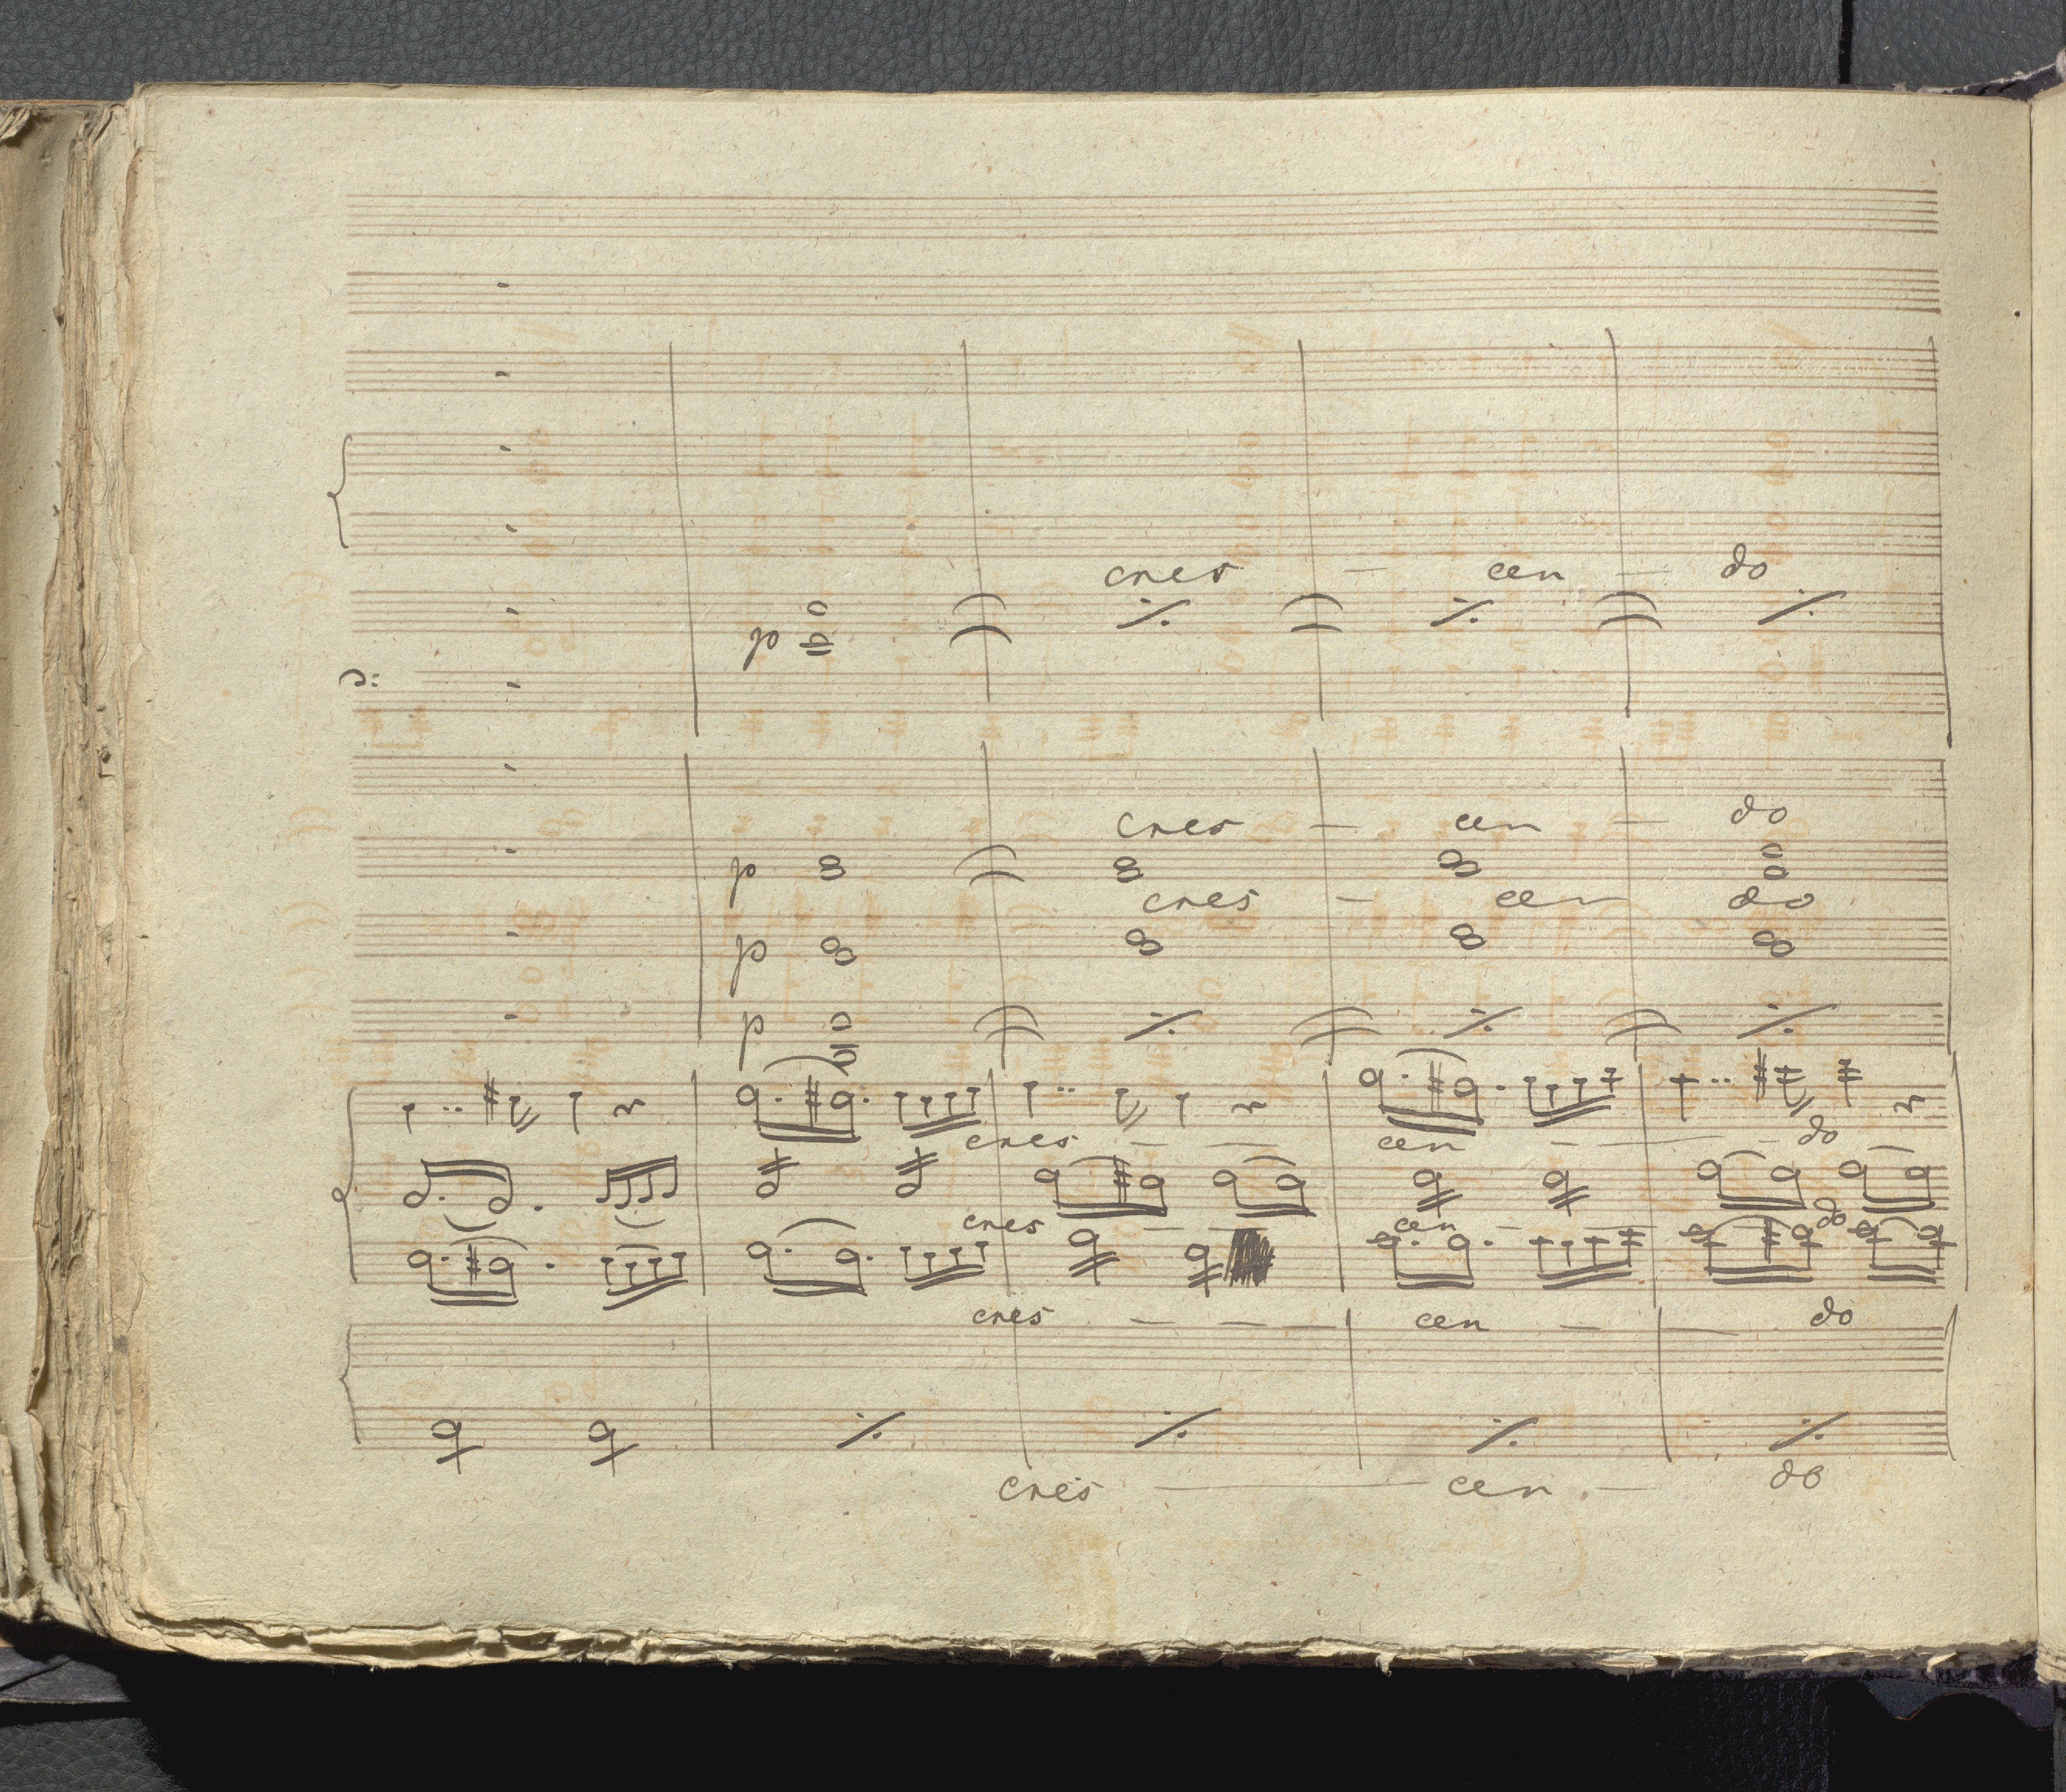 cres - cen - do
p
cres - cen - do
p
cres - cen do
p
p
cres - - cen - - - do
cres - - cen - - do
cres - - - cen - - do
cres - cen - do